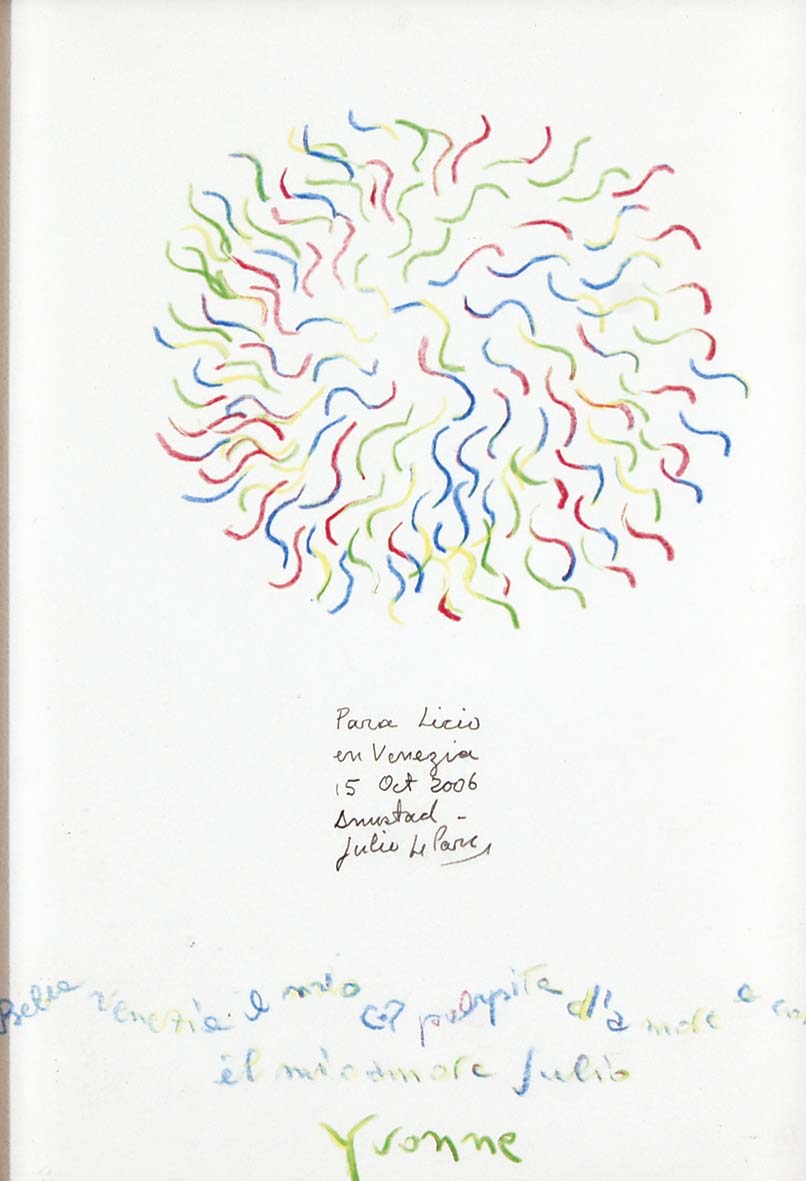 Para Licio
en Venezia
15 Oct 2006
Amistad -
Julio Le Parc
Venezia il mio palpita d'amore e
el mio amore Julio
Yvonne